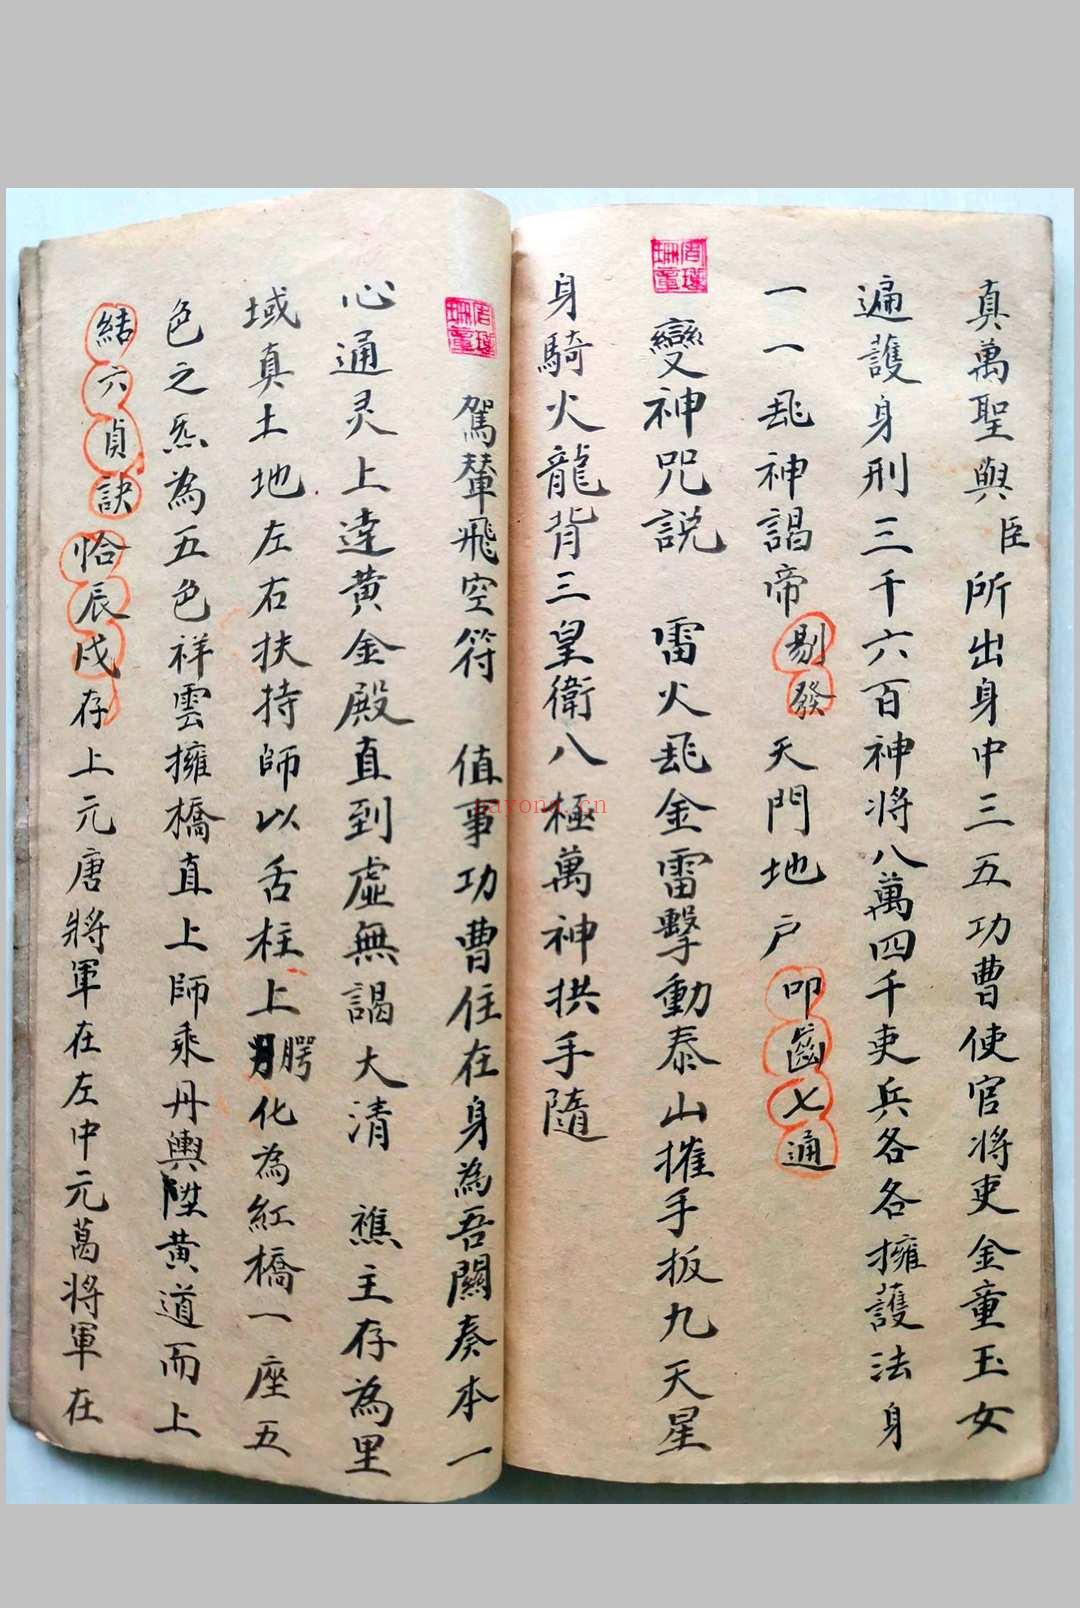 真萬聖與臣所出身中三五功曹使官将吏金童玉女
遍護身刑三千六百神将八萬四千吏兵各各擁護法身
一一飛神謁帝剔發天門地户叩齒七通
變神咒説 雷火飛金雷擊動泰山摧手扳九天星
身騎火龍背三皇衛八極萬神拱手隨
駕輦飛空符 值事功曹住在身為吾關奏本一
心通灵上達黄金殿直到虚無謁大清 樵主存為里
域真土地左右扶持師以舌柱上腭化為紅橋一座五
色之炁為五色祥雲擁橋直上師乘丹輿陞黄道而上
結六貞訣恰辰戌存上元唐將軍在左中元葛将軍在